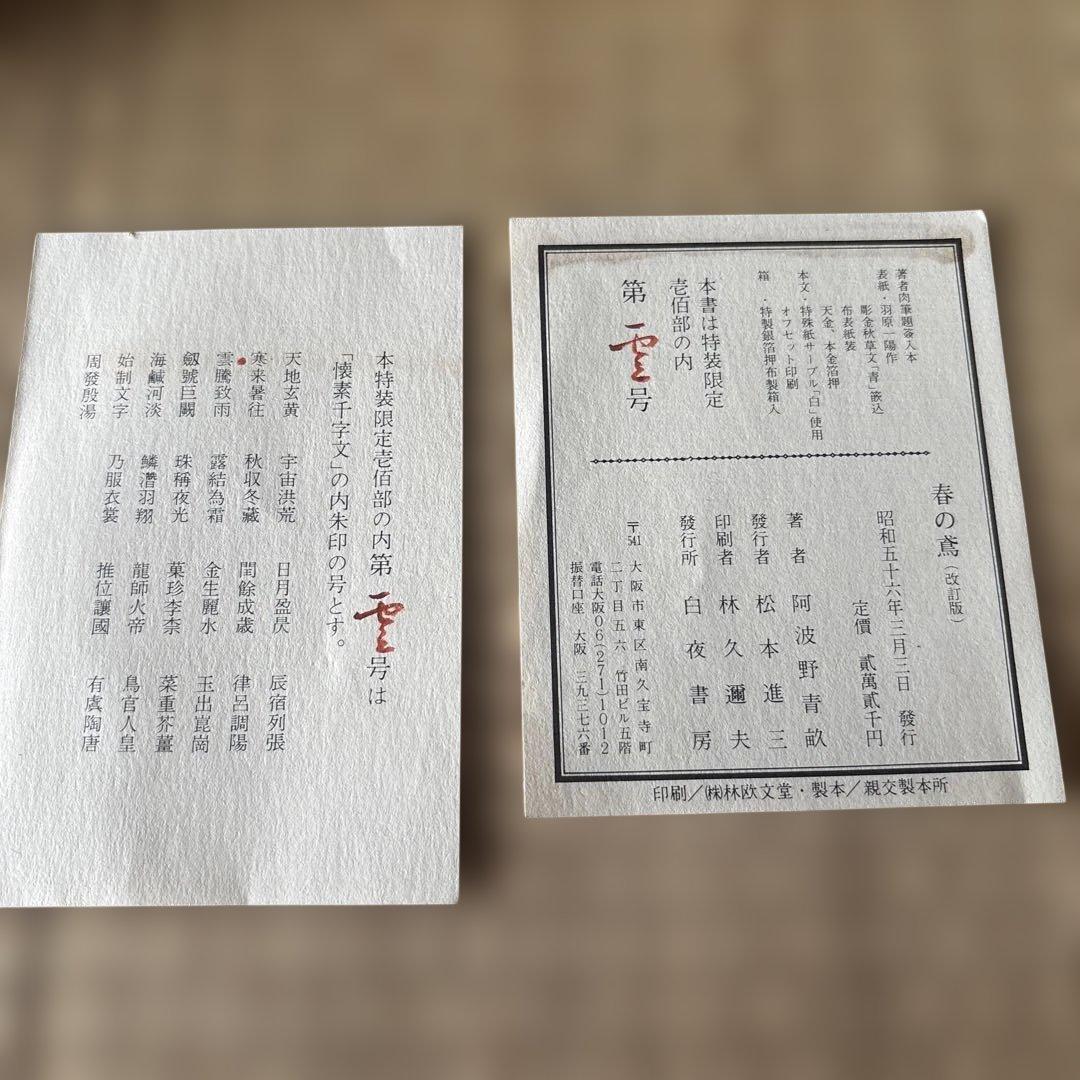 本特装限定壱佰部の内第雲号は
「懐素千字文」の内朱印の号とす。
天地玄黄　宇宙洪荒　日月盈昃　辰宿列張
寒来暑往　秋収冬蔵　閏餘成歳　律呂調陽
雲騰致雨　露結為霜　金生麗水　玉出崑崗
劔號巨闕　珠稱夜光　菓珍李柰　菜重芥薑
海鹹河淡　鱗潛羽翔　龍師火帝　鳥官人皇
始制文字　乃服衣裳　推位讓國　有虞陶唐
周發殷湯
著者肉筆題簽入本
表紙・羽原一陽作
彫金秋草文「青」嵌込
布表紙装
天金、本金箔押
本文・特殊紙サーブル「白」使用
オフセット印刷
箱　・特製銀箔押布製箱入
本書は特装限定
壱佰部の内
第雲号
春の鳶（改訂版）
昭和五十六年三月三日　發行
定價　貳萬貳千円
著者　阿波野青畝
發行者　松本進三
印刷者　林久邇夫
發行所　白夜書房
〒541　大阪市東区南久宝寺町
二丁目五六　竹田ビル五階
電話大阪06(271)1012
振替口座　大阪　三九三七六番
印刷／㈱林欧文堂・製本／親交製本所